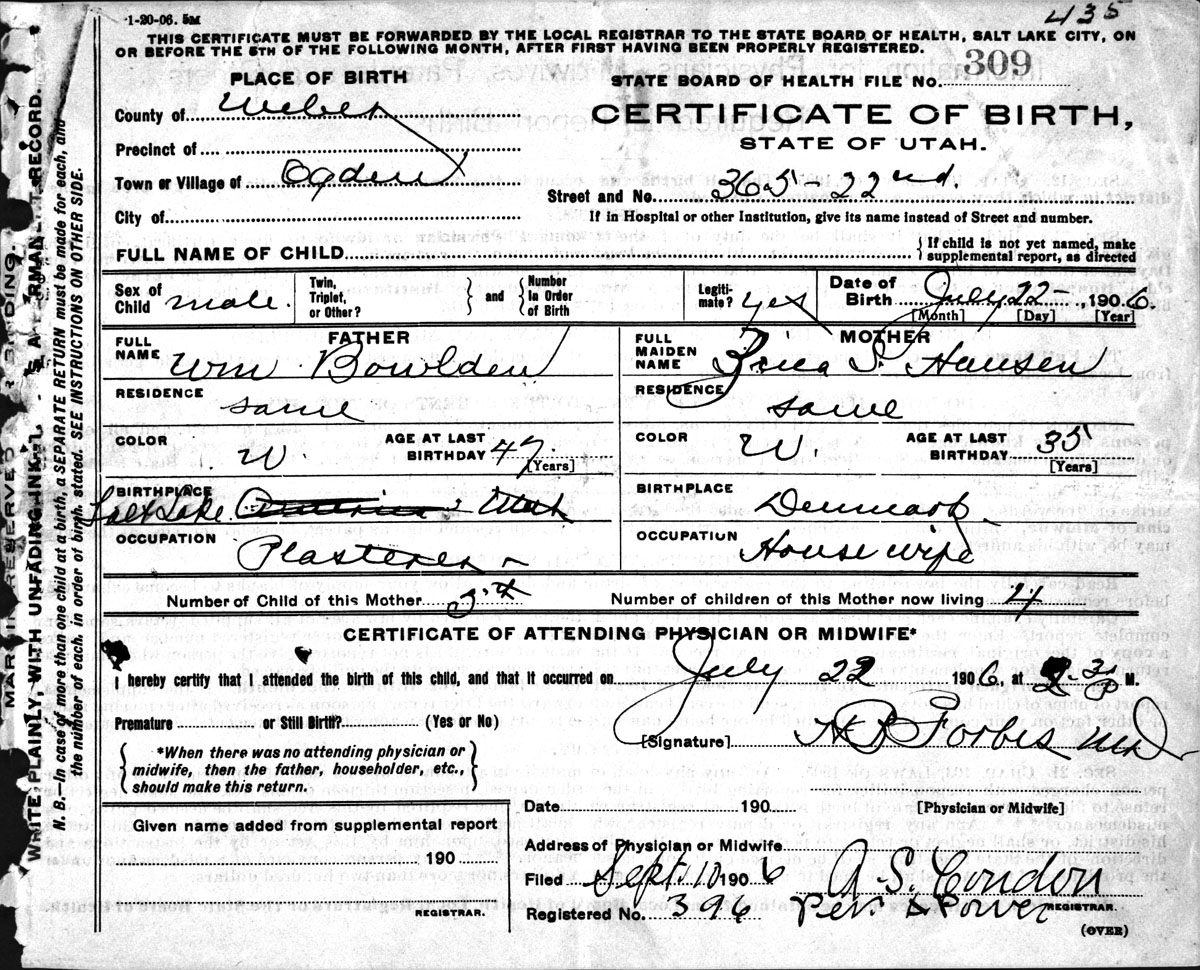 1-20-06. 5M
435
THIS CERTIFICATE MUST BE FORWARDED BY THE LOCAL REGISTRAR TO THE STATE BOARD OF HEALTH, SALT LAKE CITY, ON
OR BEFORE THE 5TH OF THE FOLLOWING MONTH, AFTER FIRST HAVING BEEN PROPERLY REGISTERED.
PLACE OF BIRTH
STATE BOARD OF HEALTH FILE No. 309
County of Weber
CERTIFICATE OF BIRTH,
STATE OF UTAH.
Precinct of
Town or Village of Ogden
Street and No. 365 - 22nd.
City of
If in Hospital or other Institution, give its name instead of Street and number.
FULL NAME OF CHILD
If child is not yet named, make
supplemental report, as directed
Sex of Child male.
Twin, Triplet, or Other?
and
Number in Order of Birth
Legiti-mate? yes
Date of Birth July 22, 1906.
[Month] [Day] [Year]
FATHER
FULL NAME Wm Bowlden
RESIDENCE same
COLOR W.
AGE AT LAST BIRTHDAY 47
[Years]
BIRTHPLACE Salt Lake Utah
OCCUPATION Plasterer
MOTHER
FULL MAIDEN NAME S. Hansen
RESIDENCE same
COLOR W.
AGE AT LAST BIRTHDAY 35
[Years]
BIRTHPLACE Denmark
OCCUPATION House wife
Number of Child of this Mother
Number of children of this Mother now living 4
CERTIFICATE OF ATTENDING PHYSICIAN OR MIDWIFE*
I hereby certify that I attended the birth of this child, and that it occurred on July 22 1906, at M.
Premature or Still Birth? (Yes or No)
[Signature] Forbes MD
*When there was no attending physician or
midwife, then the father, householder, etc.,
should make this return.
Date 190
[Physician or Midwife]
Given name added from supplemental report
190
REGISTRAR.
Address of Physician or Midwife
Filed Sept. 10 1906
A S. Condon
Registered No. 396
Per. Power
REGISTRAR.
(OVER)
MARGIN RESERVED FOR BINDING.
WRITE PLAINLY, WITH UNFADING INK
PERMANENT RECORD.
N. B.—In case of more than one child at a birth, a SEPARATE RETURN must be made for each, and
the number of each, in order of birth, stated. SEE INSTRUCTIONS ON OTHER SIDE.